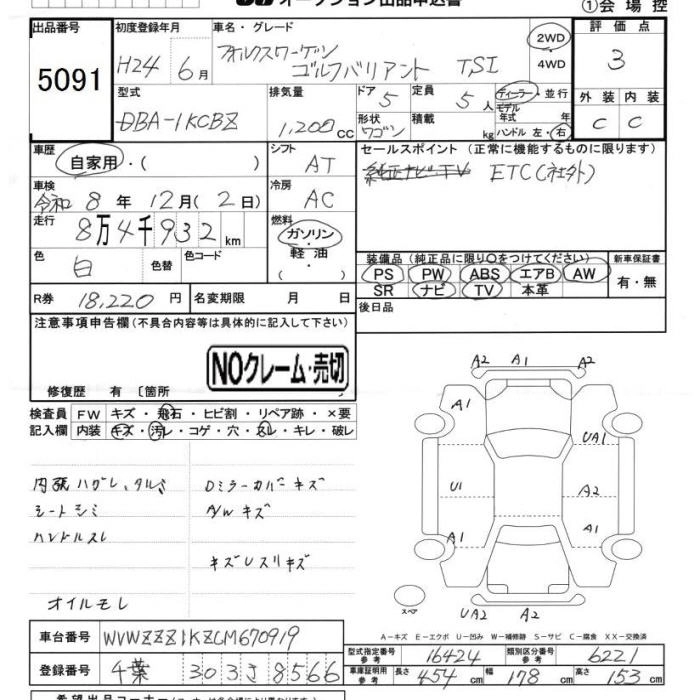 オークション出品申込書
①会場控
出品番号 5091
初度登録年月 H24 6月
車名・グレード フォルクスワーゲン ゴルフバリアント TSI
2WD・4WD
評価点 3
外装 内装
C C
型式 DBA-1KCBZ
排気量 1,200cc
ドア 5
形状 ワゴン
定員 5人
積載 kg
ディーラー・並行
モデル年式 年
ハンドル 左・右
車歴 自家用・( )
シフト AT
セールスポイント (正常に機能するものに限ります)
純正ナビ・TV ETC(社外)
車検 令和8年12月(2日)
冷房 AC
走行 8万4千932km
燃料 ガソリン・軽油・( )
色 白 色替 色コード
装備品 (純正品に限り○をつけてください)
新車保証書
PS PW ABS エアB AW
有・無
SR ナビ TV 本革
R券 18,220円 名変期限 月 日
後日品
注意事項申告欄(不具合内容等は具体的に記入して下さい)
NOクレーム・売切
修復歴 有 〔箇所 〕
検査員 FW キズ・飛石・ヒビ割・リペア跡・×要
記入欄 内装 キズ・汚レ・コゲ・穴・スレ・キレ・破レ
内張ハガレ、タルミ
シートシミ
ハンドルスレ
オイルモレ
Dミラーカバーキズ
A/Wキズ
キズUスリキズ
A2 A1 A2
A1 UA1
U1 A2
A1 A1
UA2 A2
スペア
A−キズ E−エクボ U−凹み W−補修跡 S−サビ C−腐食 XX−交換済
車台番号 WVWZZZ1KZCM670919
登録番号 千葉 303 さ 8566
型式指定番号 参考 16424 類別区分番号 参考 6221
車庫証明用 参考 長さ 454cm 幅 178cm 高さ 153cm
希望出品コーナー